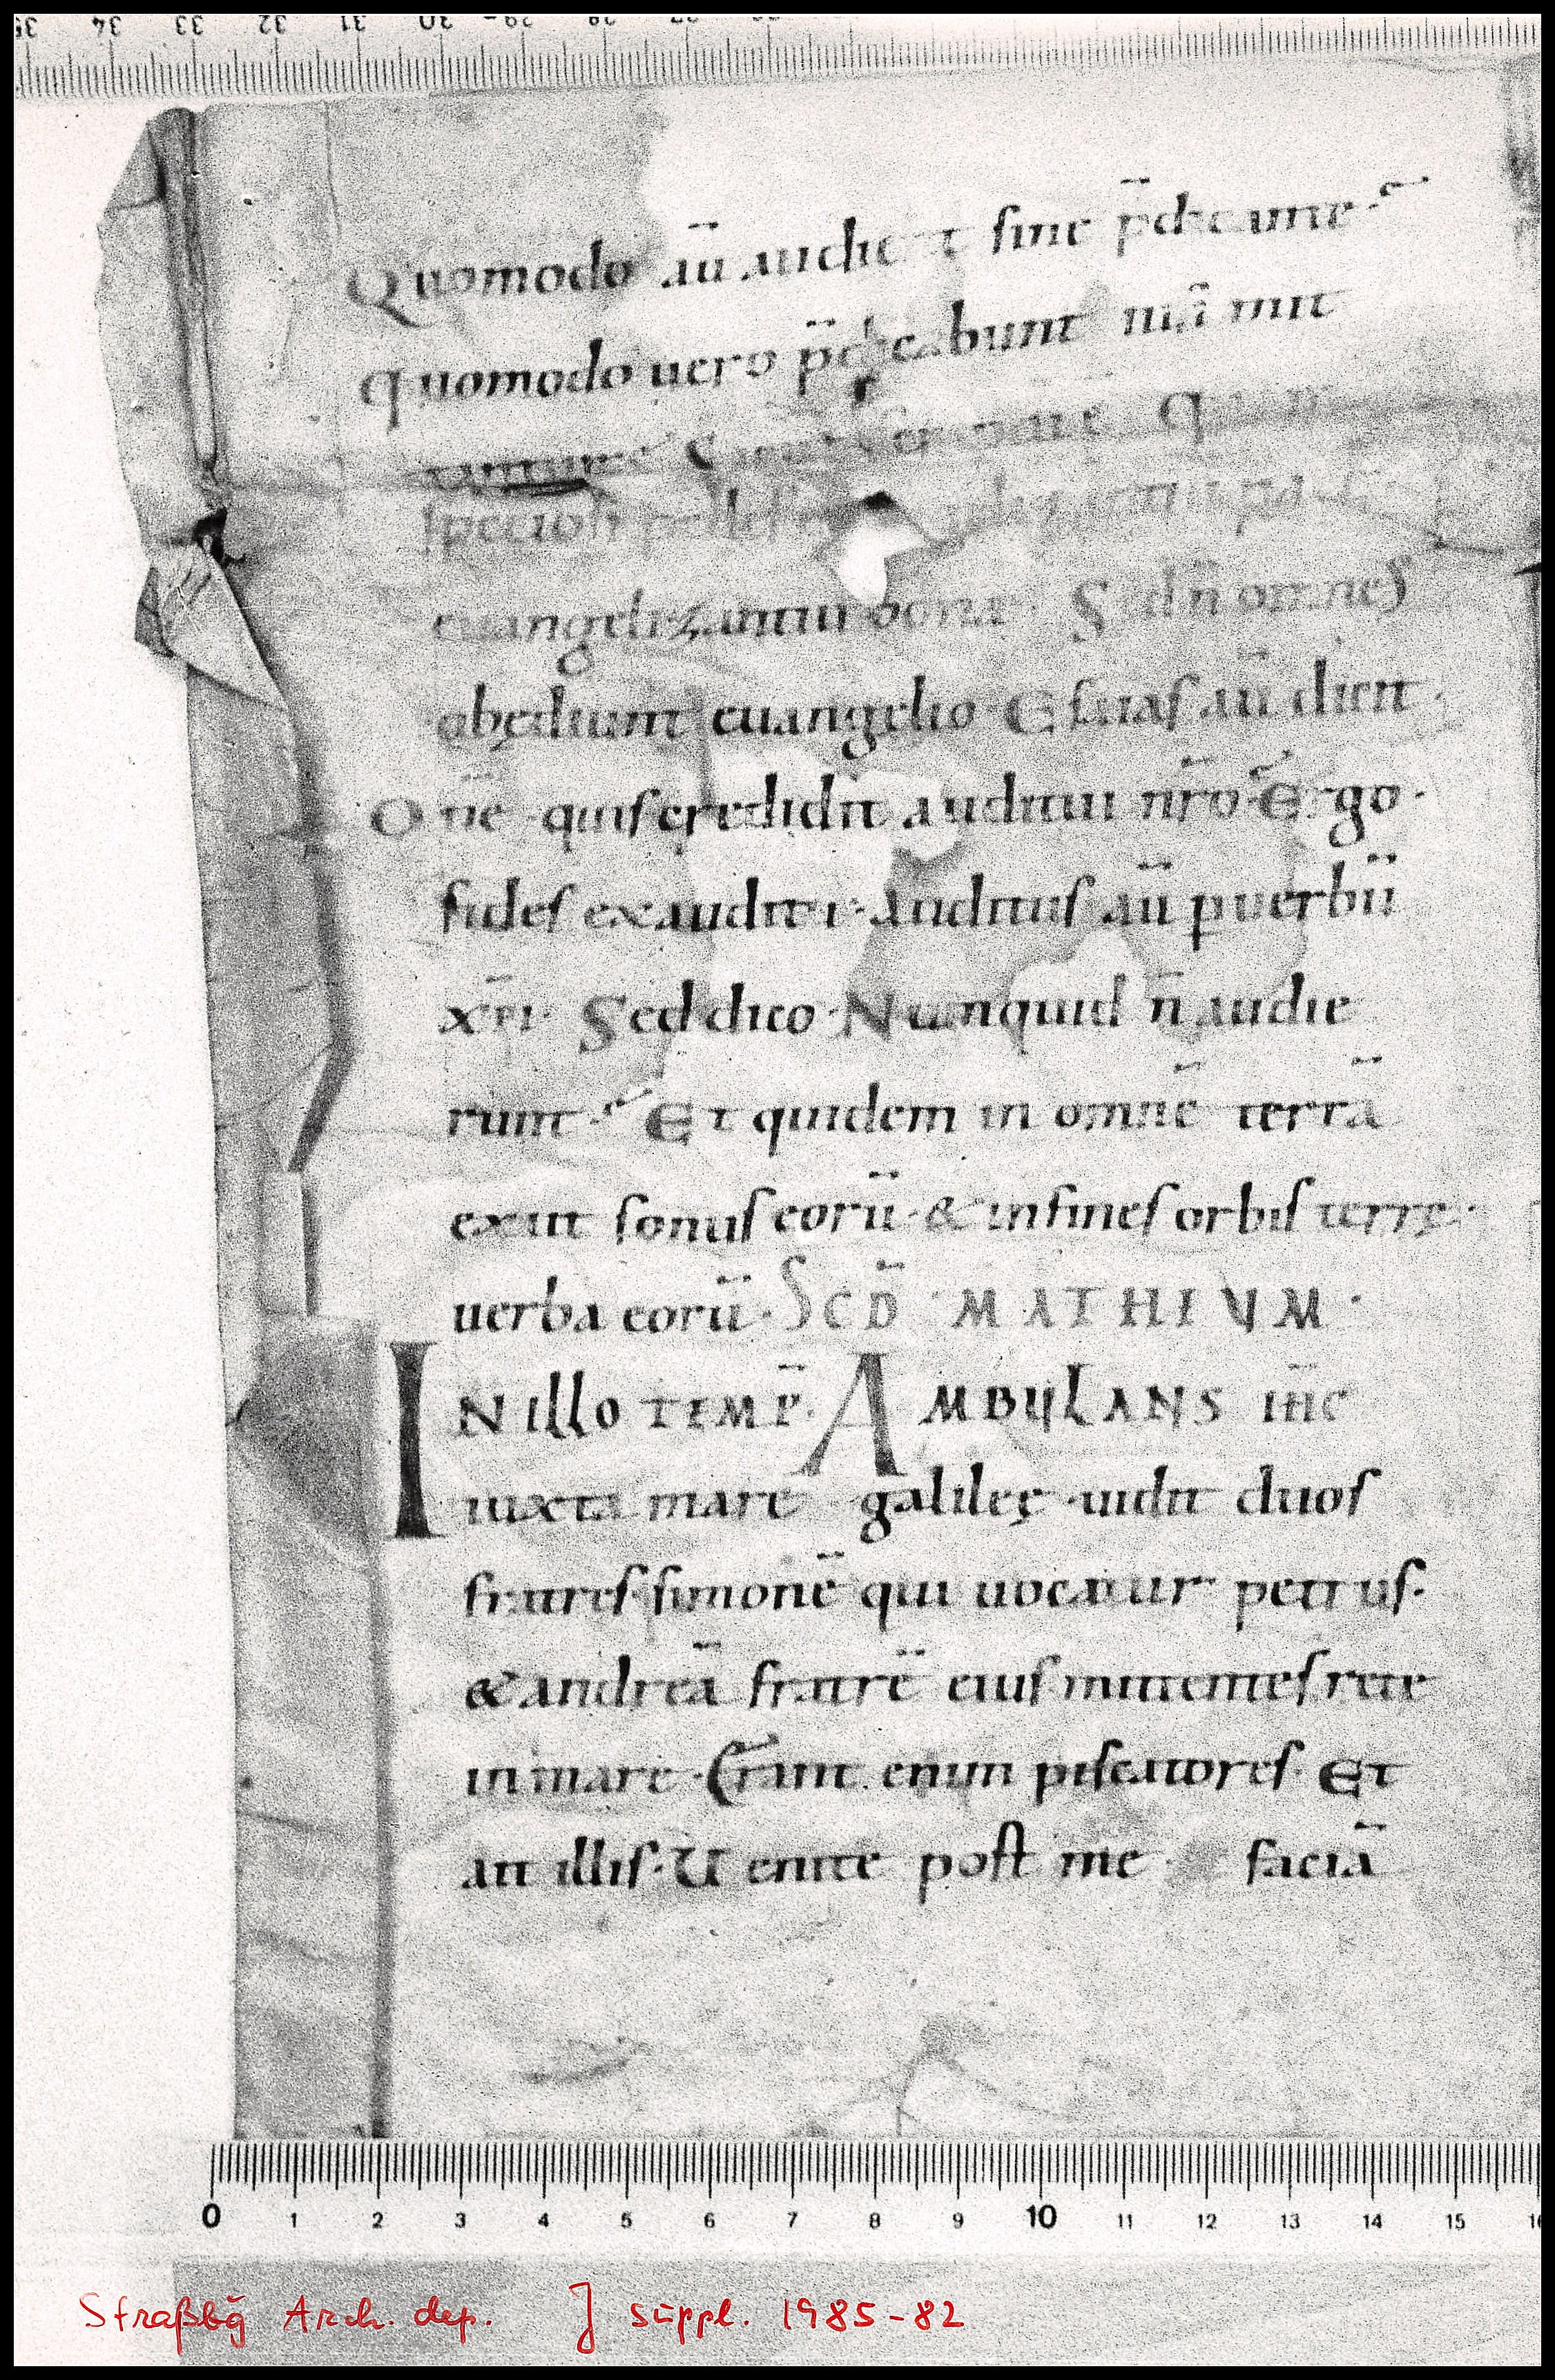 35 34 33 32 31 30 29 28 27
Quomodo aū audient sine p̄dicante
quomodo uero p̄dicabunt nisi mit
tantur Sicut scriptum Quam
speciosi pedes
euangelizantiū bona. Sed n̄ omnes
obędiunt euangelio Esaias aū dicit.
Dn̄e quis credidit auditui nr̄o Ergo.
fides ex auditu. Auditus aū p uerbū
xp̄i. Sed dico Numquid n̄ audie
runt Et quidem in omnē terrā
exiit sonus eorū. & in fines orbis terrę.
uerba eorū. SCD̄ MATHEUM.
IN ILLO TEMP̄. AMBULANS iħc
iuxta mare galileę. uidit duos
fratres. simonē qui uocatur petrus.
& andreā fratrē eius mittentes rete
in mare. Erant enim piscatores. Et
ait illis. Uenite post me faciā
0 1 2 3 4 5 6 7 8 9 10 11 12 13 14 15 16
Straßbg Arch. dep. J suppl. 1985-82